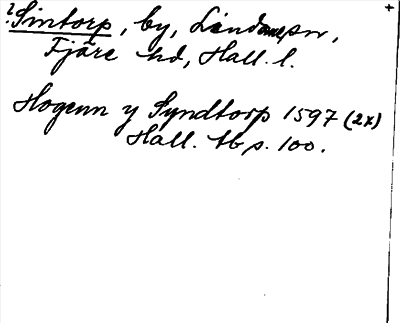 ? Sintorp, by, Lindome sn,
Fjäre hd, Hall. l.
Hogenn y Syndtorp 1597 (2x)
Hall. tb s. 100.